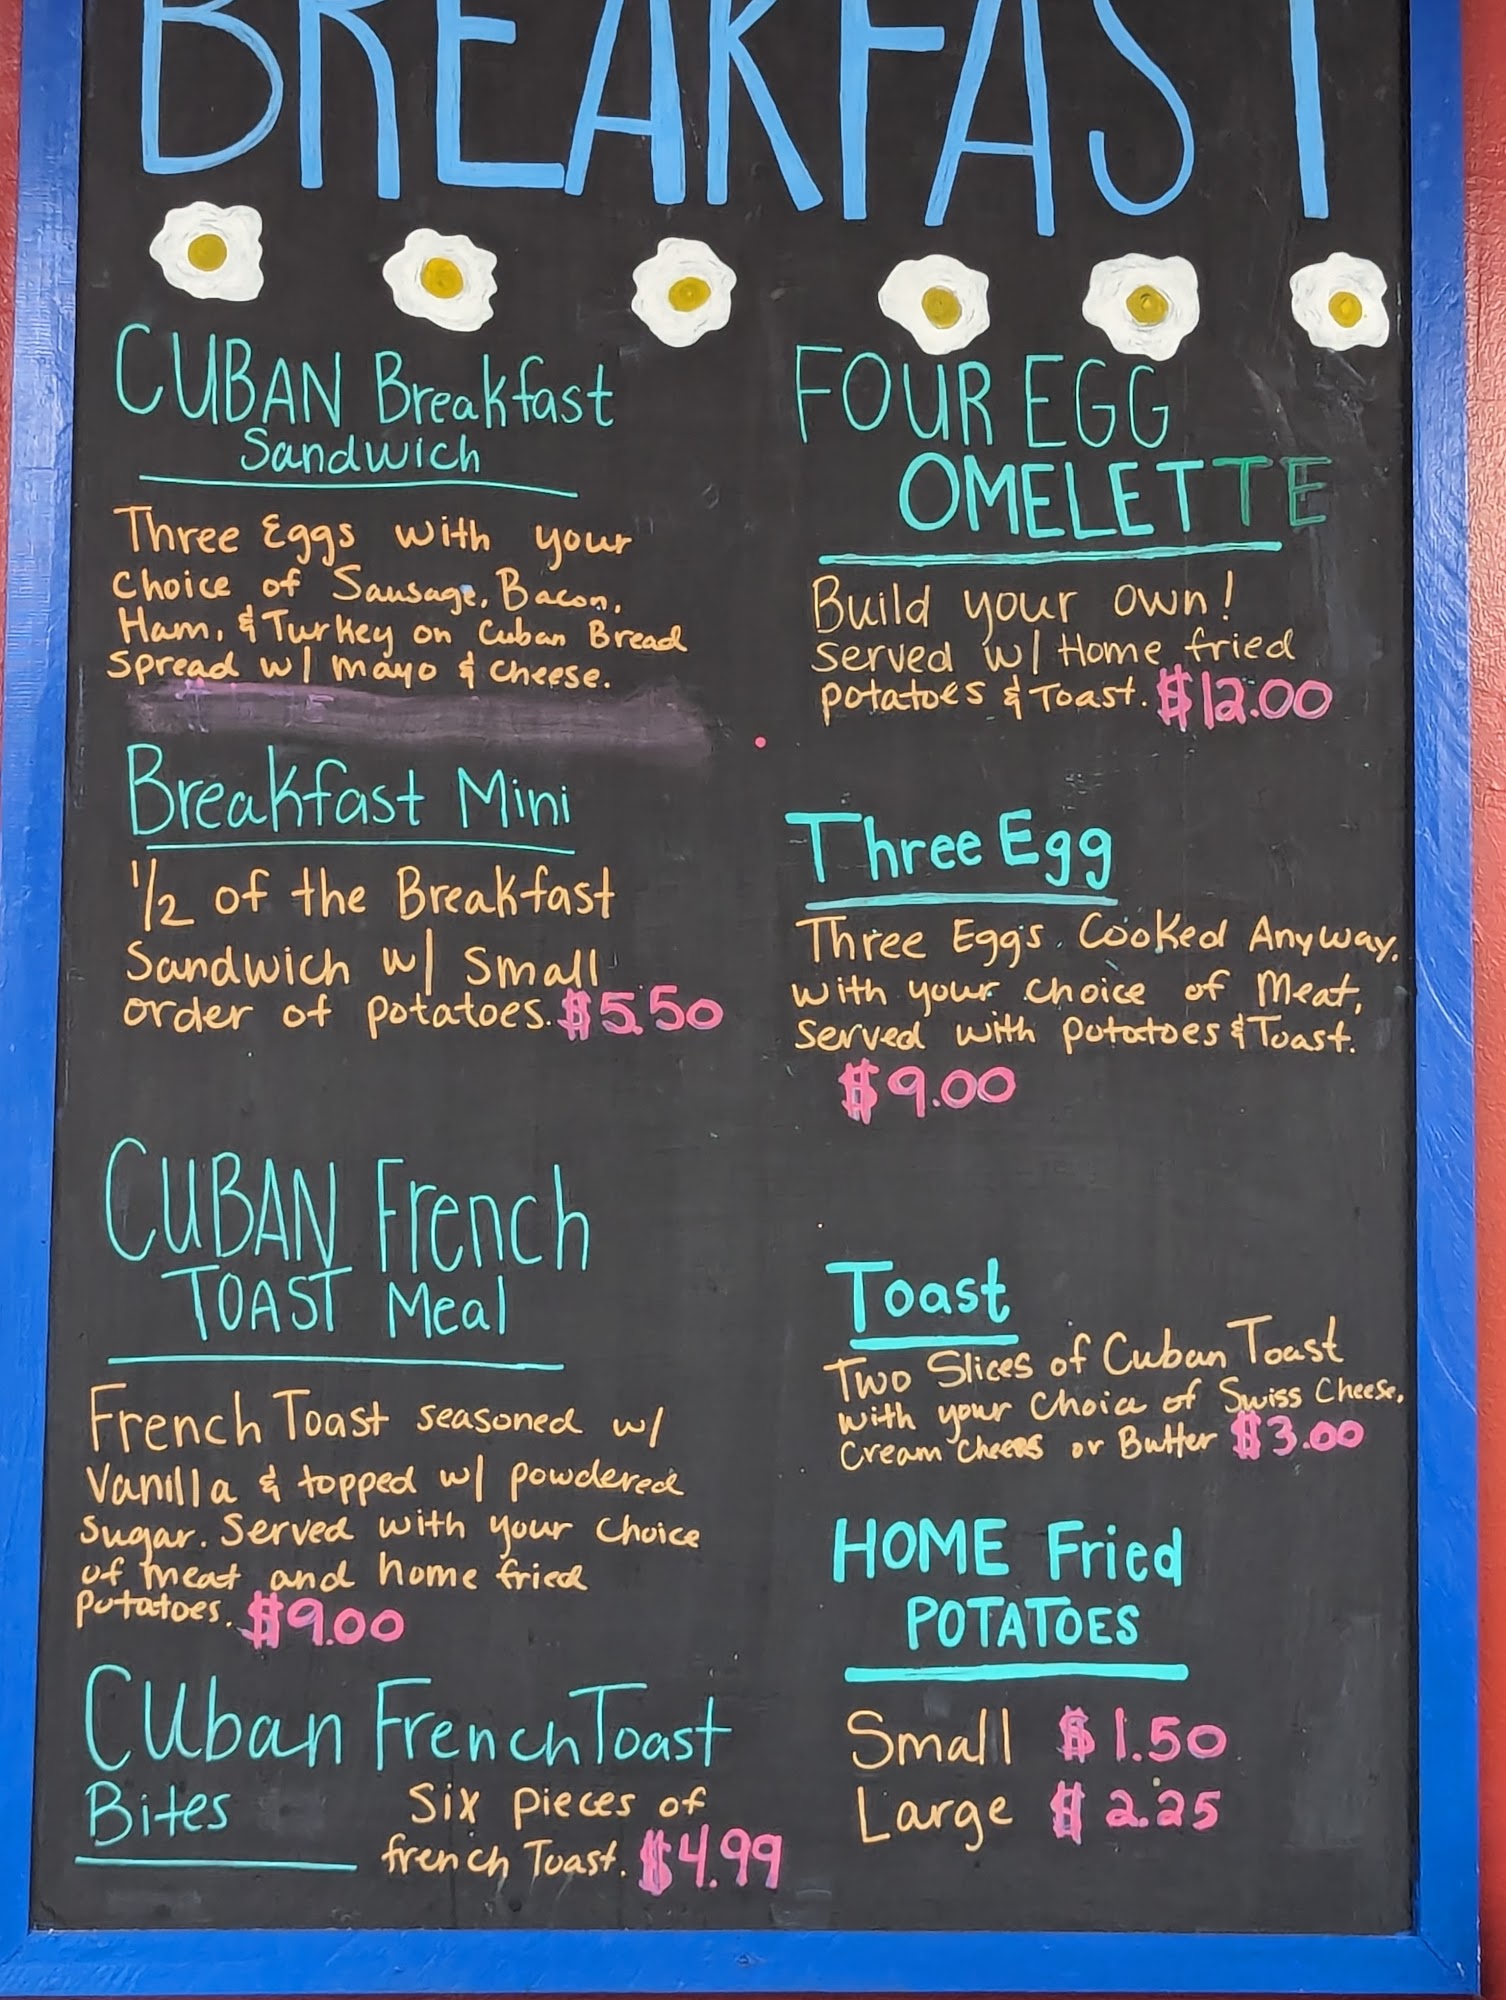 BREAKFAST
CUBAN Breakfast
Sandwich
Three Eggs with your
choice of Sausage, Bacon,
Ham, & Turkey on Cuban Bread
spread w/ mayo & cheese.
Breakfast Mini
1/2 of the Breakfast
Sandwich w/ small
order of potatoes. $5.50
CUBAN French
TOAST Meal
French Toast seasoned w/
Vanilla & topped w/ powdered
sugar. Served with your choice
of meat and home fried
potatoes. $9.00
Cuban French Toast
Bites
Six pieces of
french Toast. $4.99
FOUR EGG
OMELETTE
Build your own!
served w/ Home fried
potatoes & Toast. $12.00
Three Egg
Three Eggs Cooked Anyway,
with your choice of Meat,
served with potatoes & Toast.
$9.00
Toast
Two Slices of Cuban Toast
with your choice of Swiss Cheese,
Cream Cheees or Butter $3.00
HOME Fried
POTATOES
Small $1.50
Large $2.25